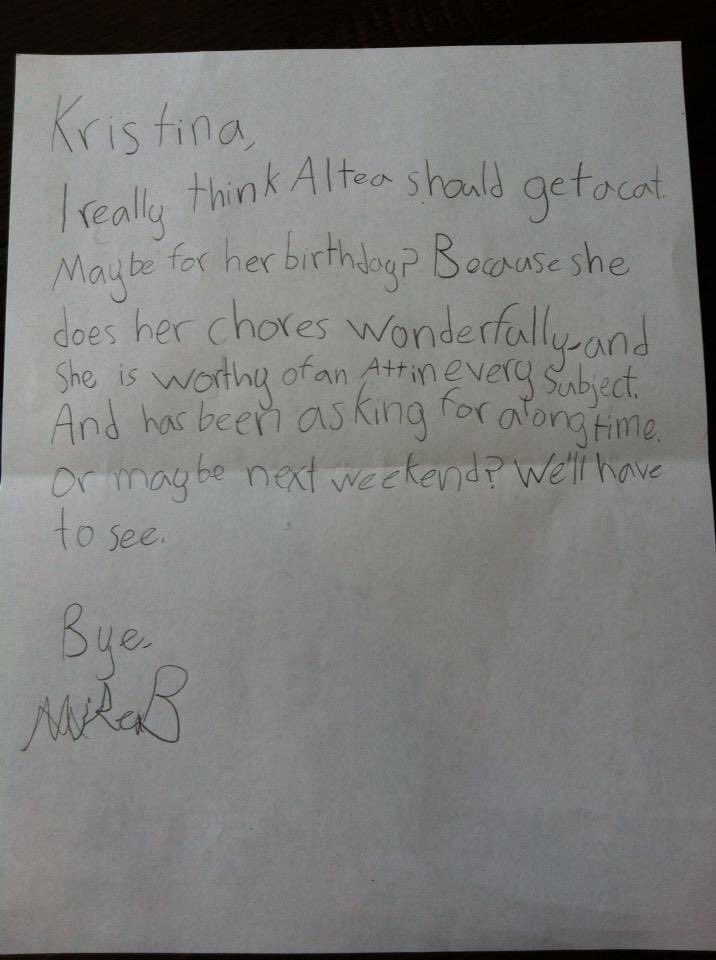 Kristina,
I really think Altea should get a cat.
Maybe for her birthday? Because she
does her chores wonderfully and
She is worthy of an A++ in every Subject.
And has been asking for a long time.
Or maybe next weekend? We'll have
to see.
Bye.
Mike B